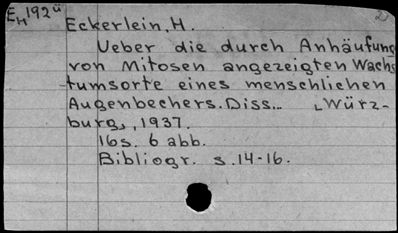 EH192ü
Eckerlein, H.
Ueber die durch Anhäufung
von Mitosen angezeigten Wachs
tumsorte eines menschlichen
Augenbechers. Diss.. Würz-
burg, 1937.
16s. 6 abb.
Bibliogr. s.14-16.